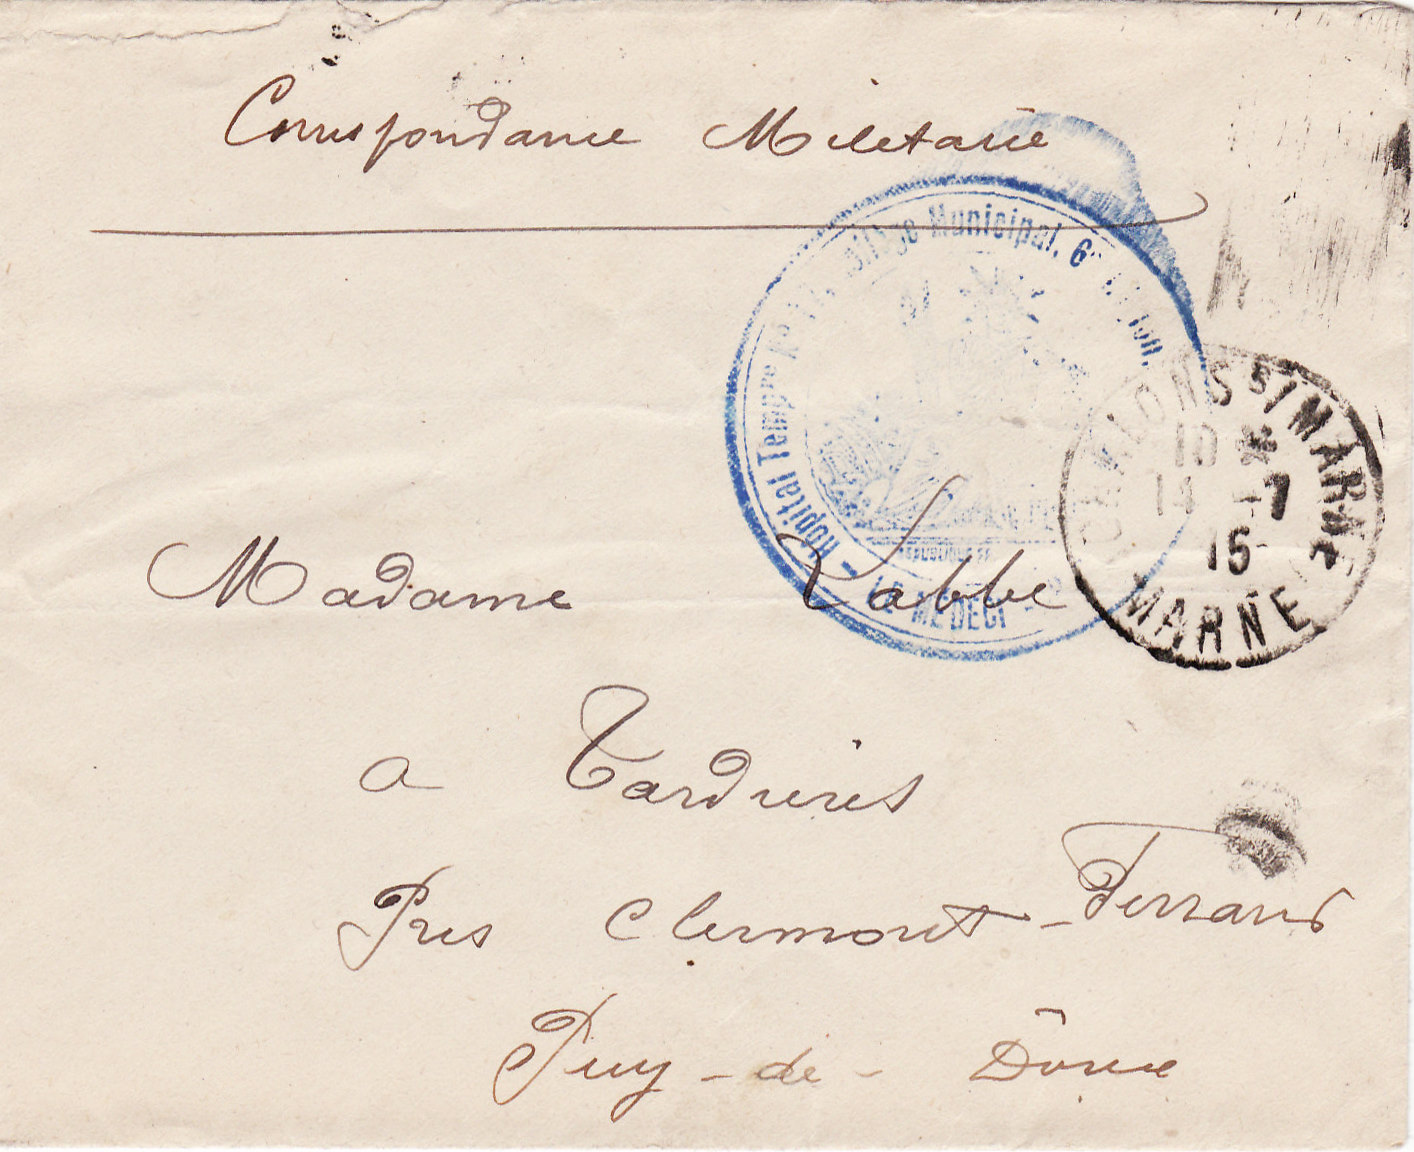 Correspondance Militaire
Hôpital Tempre No Municipal, 6
RÉPUBLIQUE FR
LE MÉDECI
CHALONS S/ MARNE
10
14 -7
15
MARNE
Madame Labbe
a Tardieres
Pres Clermont-Ferrand
Puy-de-Dôme